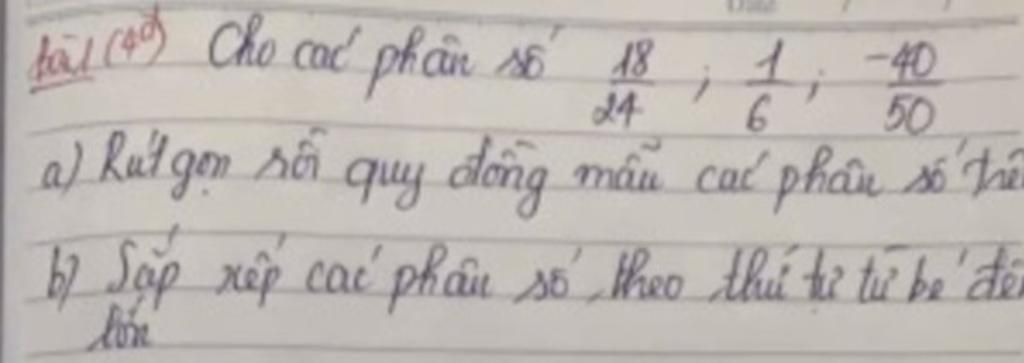 bài 1 (4đ) Cho các phân số 18/24 ; 1/6 ; -40/50
a) Rút gọn rồi quy đồng mẫu các phân số
b) Sắp xếp các phân số theo thứ tự từ bé
lớn